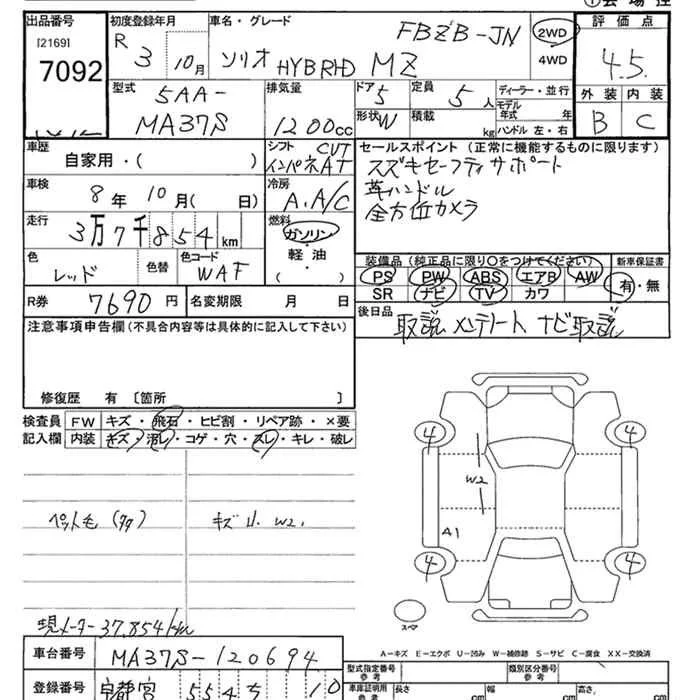 ①会場控
出品番号 初度登録年月 車名・グレード FBZB-JN 2WD 評価点
[2169]
7092 R 3 10月 ソリオ HYBRID MZ 4WD 4.5
型式 5AA-MA37S 排気量 1200cc ドア 5 定員 5人 ディーラー・並行 外装 内装
形状 W 積載 kg モデル年式 年 B C
ハンドル 左・右
車歴 自家用・( ) シフト CVT インパネAT セールスポイント (正常に機能するものに限ります)
車検 8年 10月( 日) 冷房 A.A/C スズキセーフティサポート
革ハンドル
走行 3万7千854km 燃料 ガソリン・軽油・( ) 全方位カメラ
色 レッド 色替 色コード WAF 装備品 (純正品に限り〇をつけてください) 新車保証書
PS PW ABS エアB AW 有・無
R券 7690円 名変期限 月 日 SR ナビ TV カワ
注意事項申告欄(不具合内容等は具体的に記入して下さい) 後日品 取説 メンテノート ナビ取説
修復歴 有 〔箇所 〕
検査員 FW キズ・飛石・ヒビ割・リペア跡・×要
記入欄 内装 キズ・汚レ・コゲ・穴・スレ・キレ・破レ
4 4
W2
ペット毛 キズ小 W2.
A1
4 4
現メーター37,854km
スペア
A-キズ E-エクボ U-凹み W-補修跡 S-サビ C-腐食 XX-交換済
車台番号 MA37S-120694
型式指定番号 類別区分番号
登録番号 宇都宮 554 ち 10 車庫証明用 長さ cm 幅 cm 高さ cm